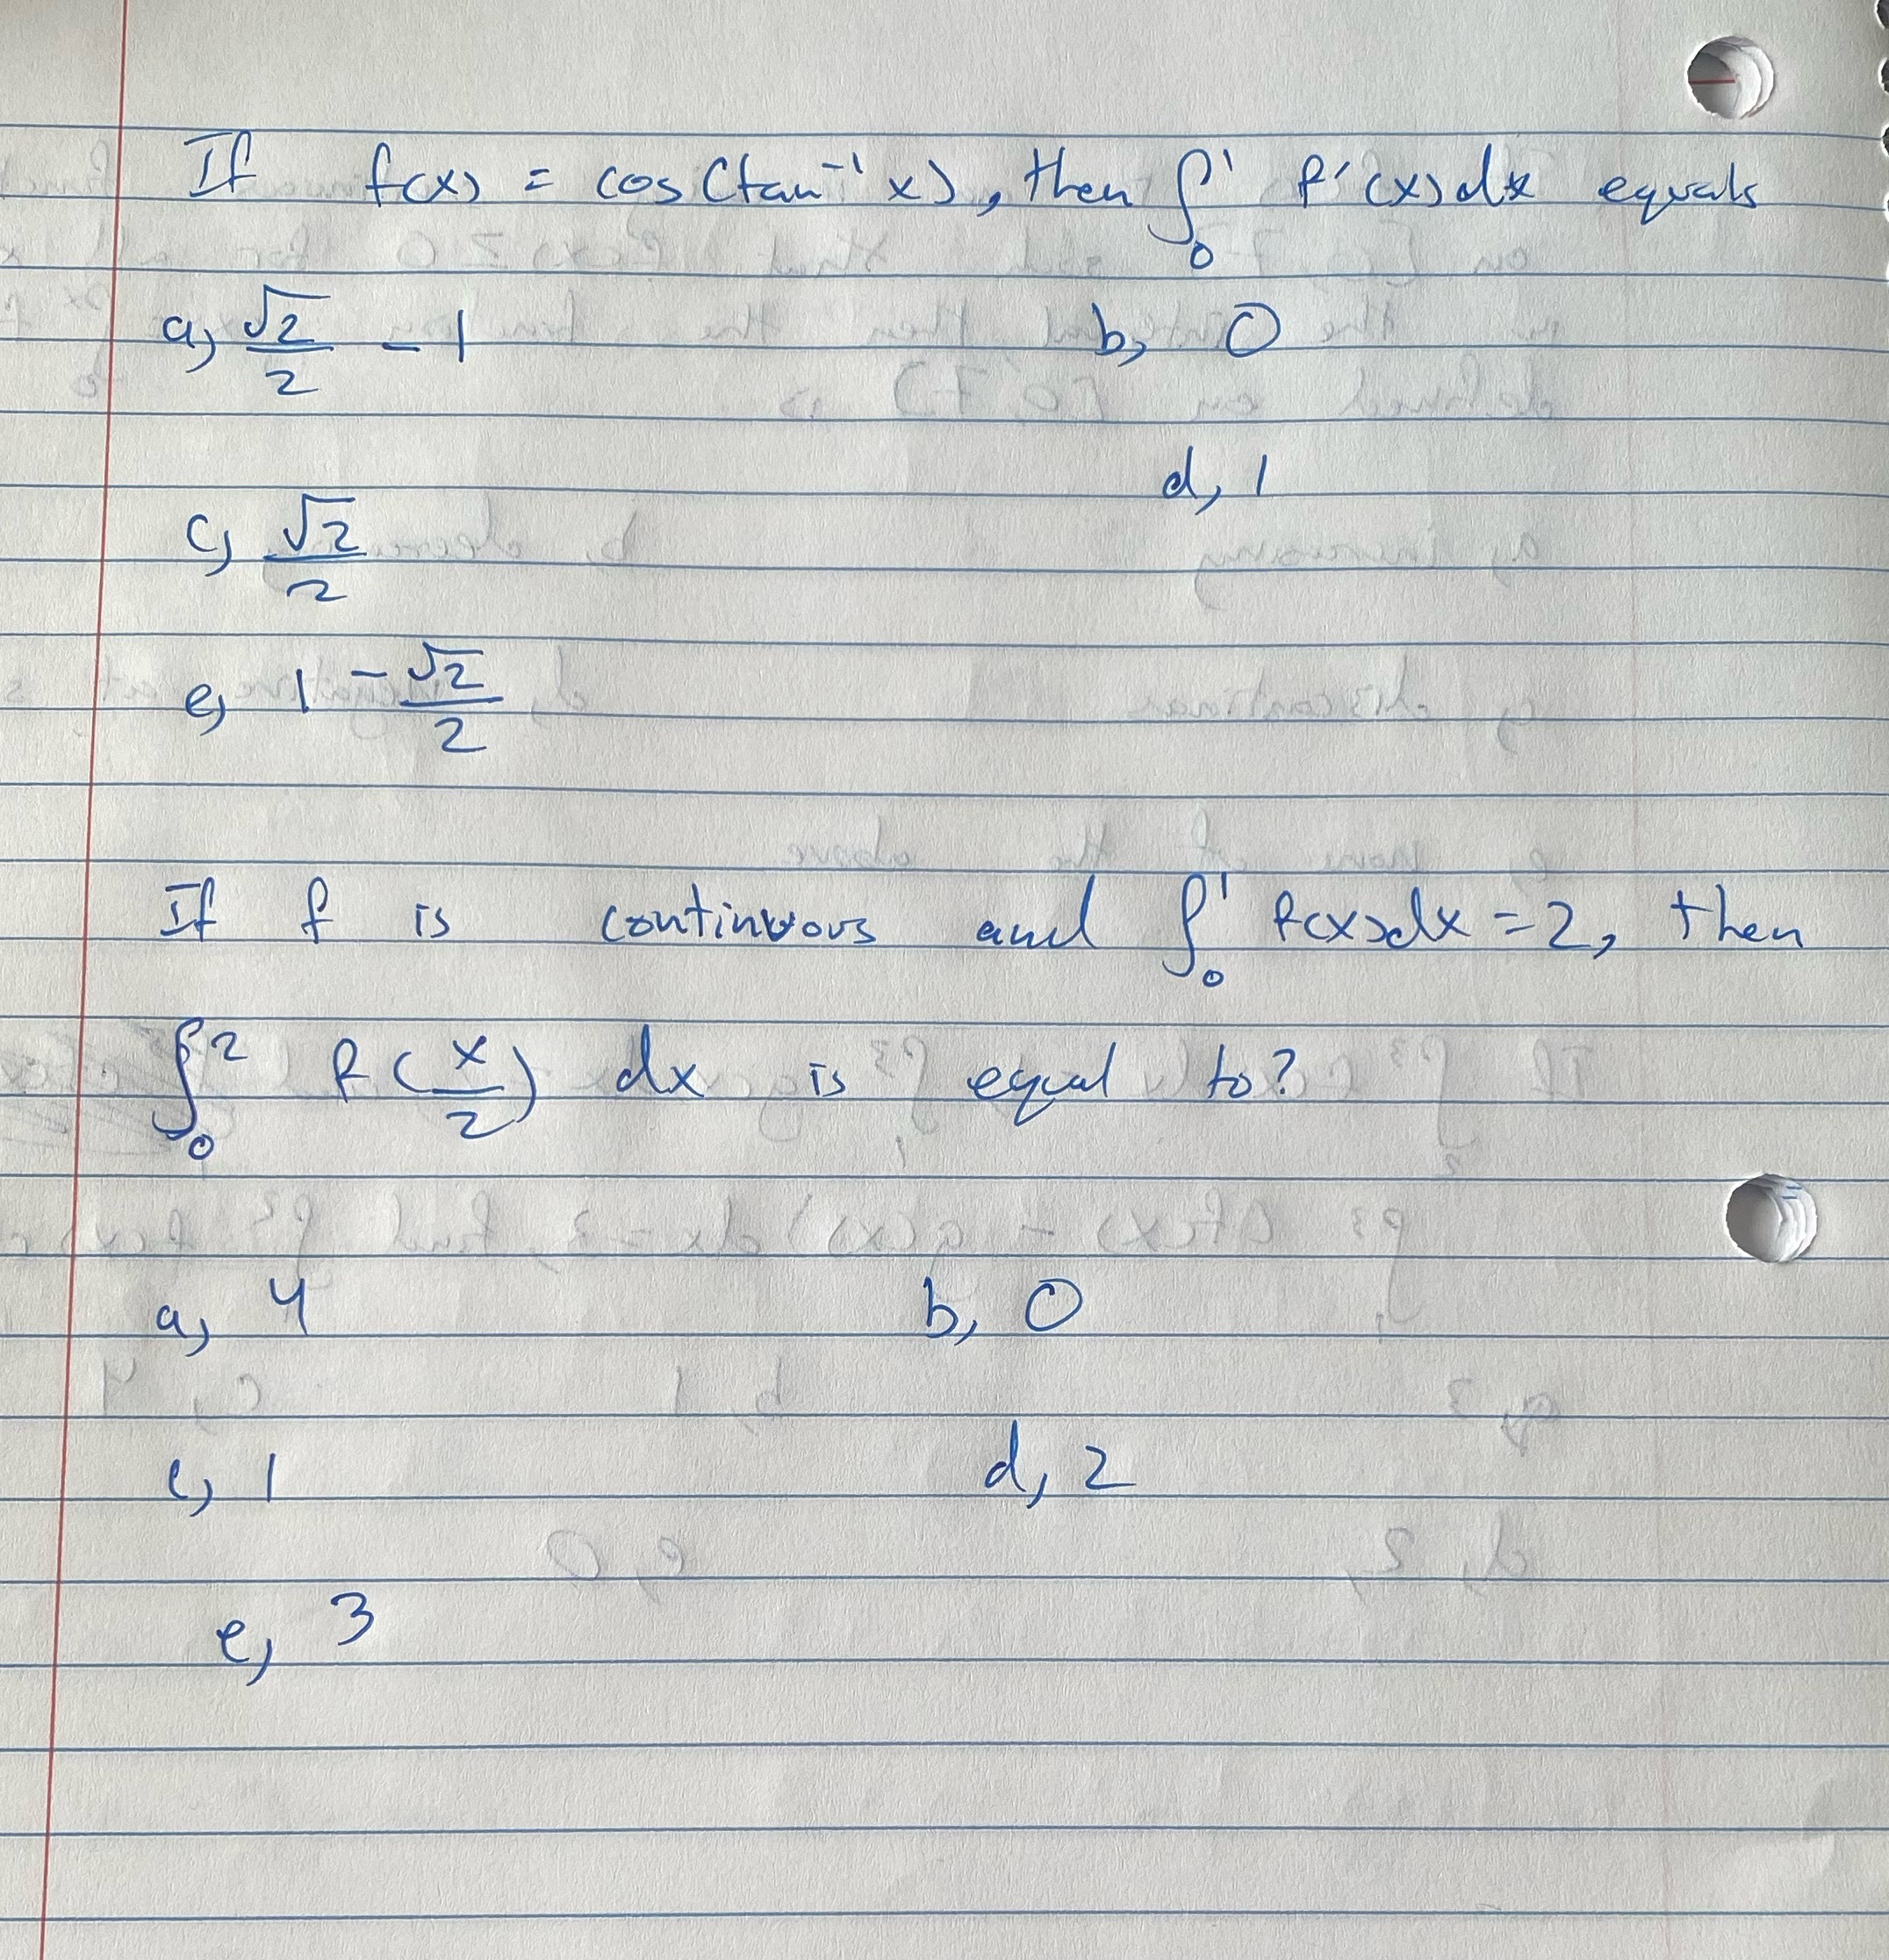 If f(x) = cos(tan⁻¹ x), then ∫₀¹ f'(x)dx equals
a) √2/2 - 1 b, 0
d, 1
c) √2/2
e) 1 - √2/2
If f is continuous and ∫₀¹ f(x)dx = 2, then
∫₀² f(x/2) dx is equal to?
a) 4 b, 0
c) 1 d, 2
e) 3